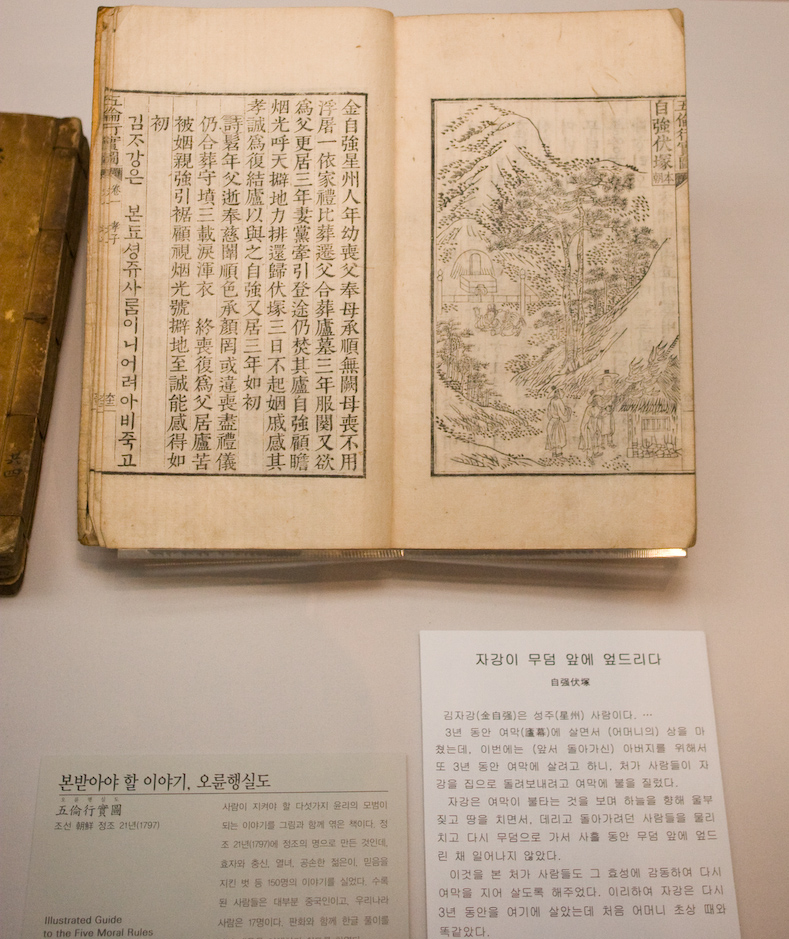 五倫行實圖
自強伏塚 本朝
金自強星州人年幼喪父奉母承順無闕母喪不用
浮屠一依家禮比葬遷父合葬廬墓三年服闋又欲
爲父更居三年妻黨牽引登途仍焚其廬自強顧瞻
烟光呼天擗地力排還歸伏塚三日不起姻戚感其
孝誠爲復結廬以與之自強又居三年如初
詩髫年父逝奉慈闈順色承顔罔或違喪盡禮儀
仍合葬守墳三載淚渾衣 終喪復爲父居廬苦
被姻親強引裾顧視烟光號擗地至誠能感得如
初
김ᄌᆞ강은 본됴셩쥬사ᄅᆞᆷ이니어려아비죽고
五倫行實圖 卷一 孝子
자강이 무덤 앞에 엎드리다
自强伏塚
김자강(金自强)은 성주(星州) 사람이다. …
3년 동안 여막(廬幕)에 살면서 (어머니의) 상을 마
쳤는데, 이번에는 (앞서 돌아가신) 아버지를 위해서
또 3년 동안 여막에 살려고 하니, 처가 사람들이 자
강을 집으로 돌려보내려고 여막에 불을 질렀다.
자강은 여막이 불타는 것을 보며 하늘을 향해 울부
짖고 땅을 치면서, 데리고 돌아가려던 사람들을 물리
치고 다시 무덤으로 가서 사흘 동안 무덤 앞에 엎드
린 채 일어나지 않았다.
이것을 본 처가 사람들도 그 효성에 감동하여 다시
여막을 지어 살도록 해주었다. 이리하여 자강은 다시
3년 동안을 여기에 살았는데 처음 어머니 초상 때와
똑같았다.
본받아야 할 이야기, 오륜행실도
오륜행실도
五倫行實圖
조선 朝鮮 정조 21년(1797)
사람이 지켜야 할 다섯가지 윤리의 모범이
되는 이야기를 그림과 함께 엮은 책이다. 정
조 21년(1797)에 정조의 명으로 만든 것인데,
효자와 충신, 열녀, 공손한 젊은이, 믿음을
지킨 벗 등 150명의 이야기를 실었다. 수록
된 사람들은 대부분 중국인이고, 우리나라
사람은 17명이다. 판화와 함께 한글 풀이를
Illustrated Guide
to the Five Moral Rules